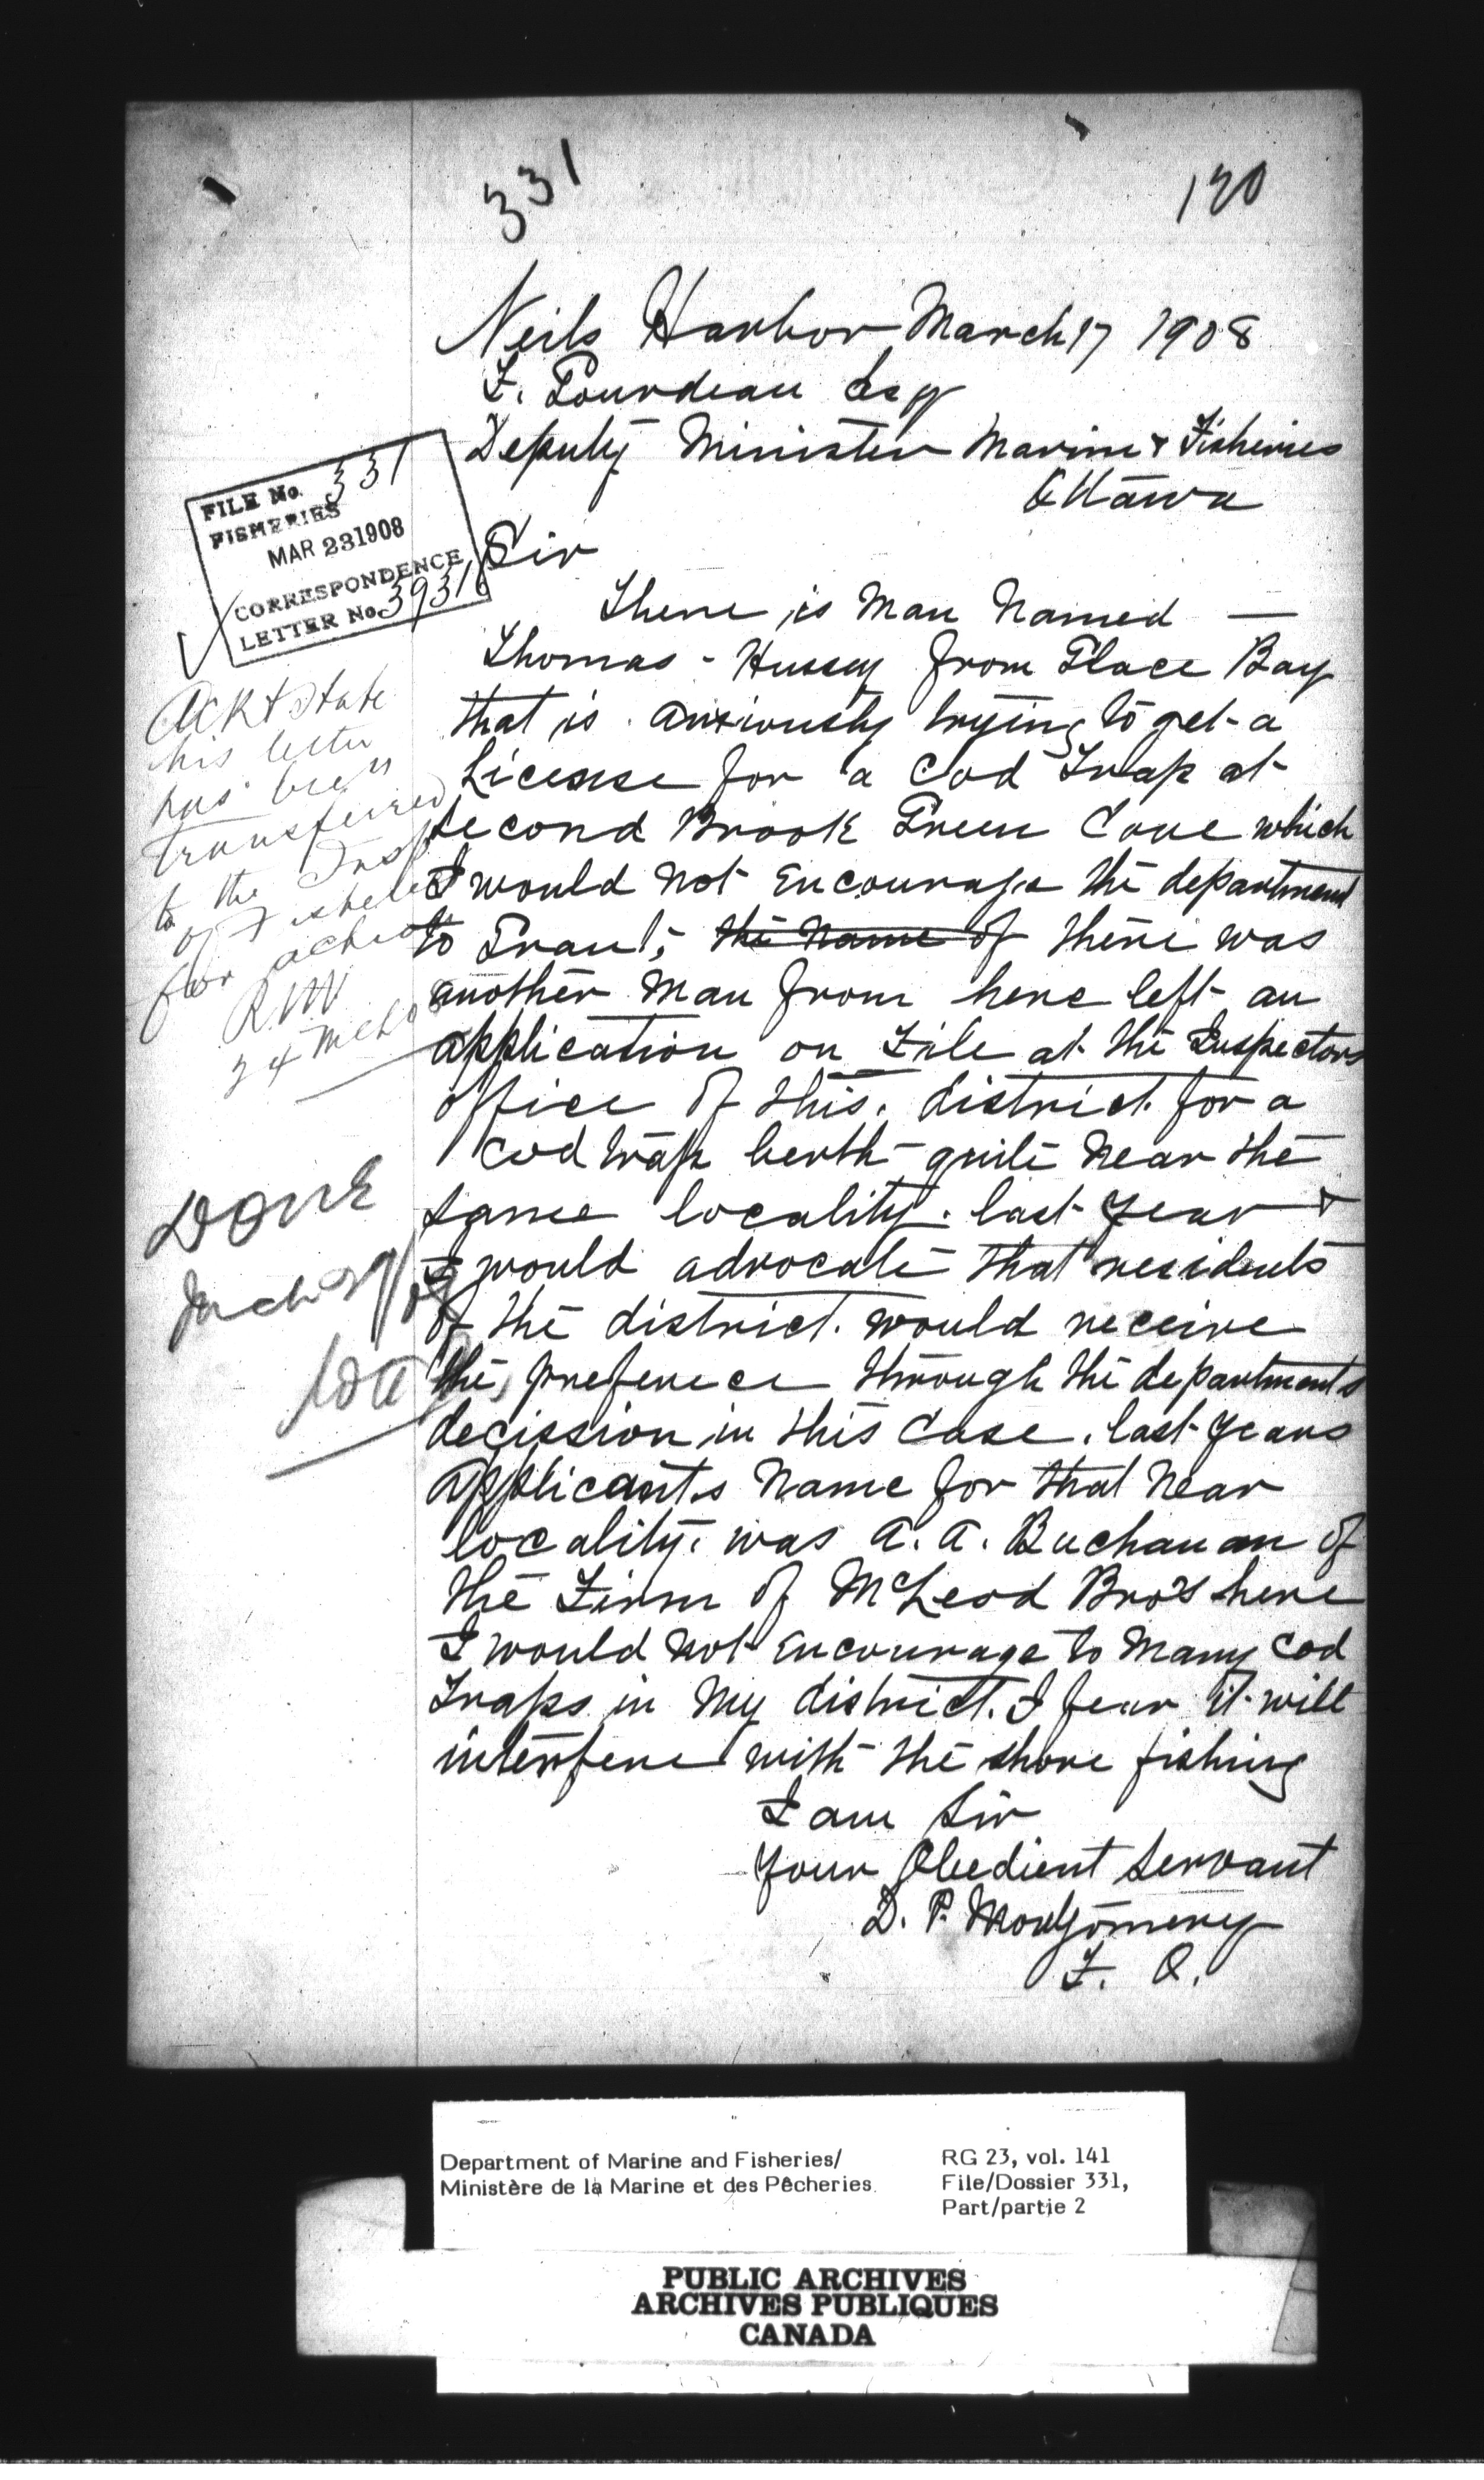 331
120
Neils Harbor March 17 1908
F. Gourdeau Esq
Deputy Minister Marine & Fisheries
Ottawa
FILE No. 331
FISHERIES
MAR 23 1908
CORRESPONDENCE
LETTER No. 3931
Sir
There is Man Named —
Thomas - Hussey from Glace Bay
that is anxiously trying to get a
License for a Cod Trap at
Second Brook Green Cove which
I would not encourage the department
to Grant; the name of there was
another man from here left an
application on File at the Inspectors
office of this. district. for a
Cod trap berth quite near the
same locality. last year &
I would advocate that residents
of the district. would receive
the preference through the departments
decission in this Case. last years
applicants name for that near
locality. was A. A. Buchanan of
the Firm of McLeod Bros here
I would not encourage to many Cod
Traps in my district. I fear it will
interfere with the shore fishing
I am Sir
Your Obedient Servant
D. P. Montgomery
F. O.
Ack & State
his letter
has been
transferred
to the Insp
of Fisheries
for action
R.W
24 Mch 08
Done
Mch 27/08
Department of Marine and Fisheries/
Ministère de la Marine et des Pêcheries
RG 23, vol. 141
File/Dossier 331,
Part/partie 2
PUBLIC ARCHIVES
ARCHIVES PUBLIQUES
CANADA